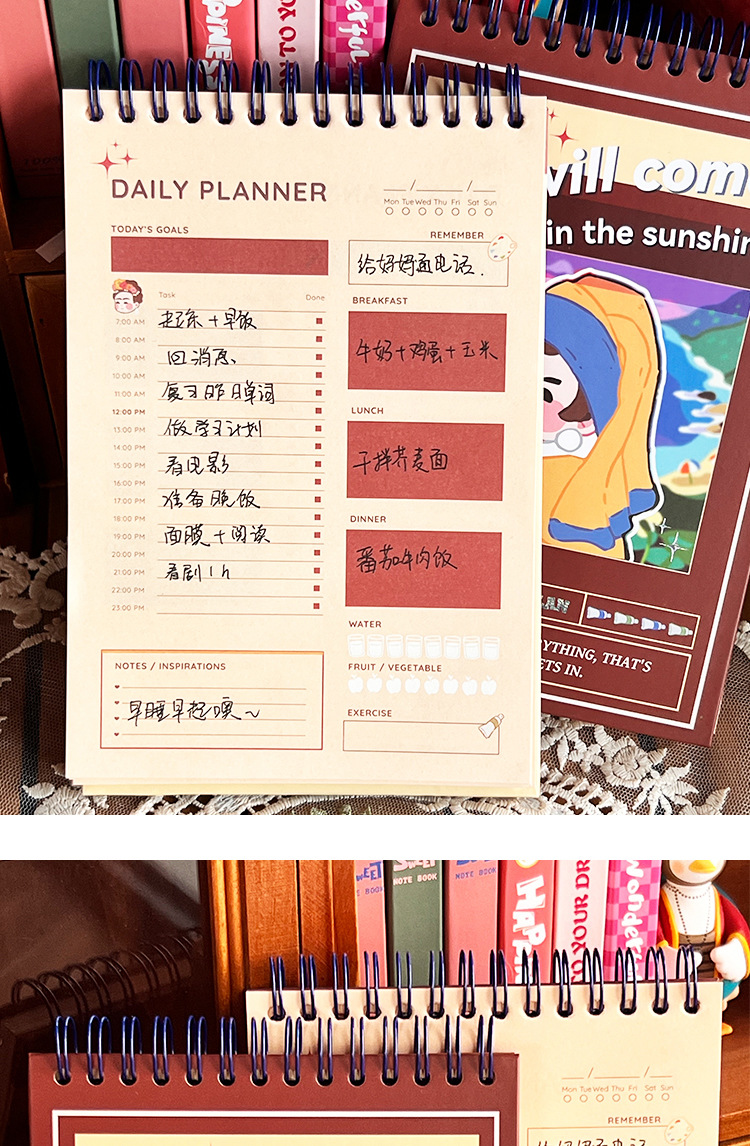 HAPPINESS
DAILY PLANNER
Mon Tue Wed Thu Fri Sat Sun
TODAY'S GOALS
REMEMBER
给妈妈通电话.
Task
Done
7:00 AM 起床+早饭
8:00 AM
9:00 AM 回消息
10:00 AM
11:00 AM 复习昨日单词
12:00 PM
13:00 PM 做学习计划
14:00 PM
15:00 PM 看电影
16:00 PM
17:00 PM 准备晚饭
18:00 PM
19:00 PM 面膜+阅读
20:00 PM
21:00 PM 看剧1h
22:00 PM
23:00 PM
BREAKFAST
牛奶+鸡蛋+玉米
LUNCH
干拌荞麦面
DINNER
番茄牛肉饭
WATER
FRUIT / VEGETABLE
EXERCISE
NOTES / INSPIRATIONS
早睡早起噢~
will com
in the sunshin
LAN
YTHING, THAT'S
ETS IN.
WEET
NOTE BOOK
SWEET
NOTE BOOK
NOTE BOOK
HAP
TO YOUR DR
Wonderfu
Mon Tue Wed Thu Fri Sat Sun
REMEMBER
给妈妈通电话